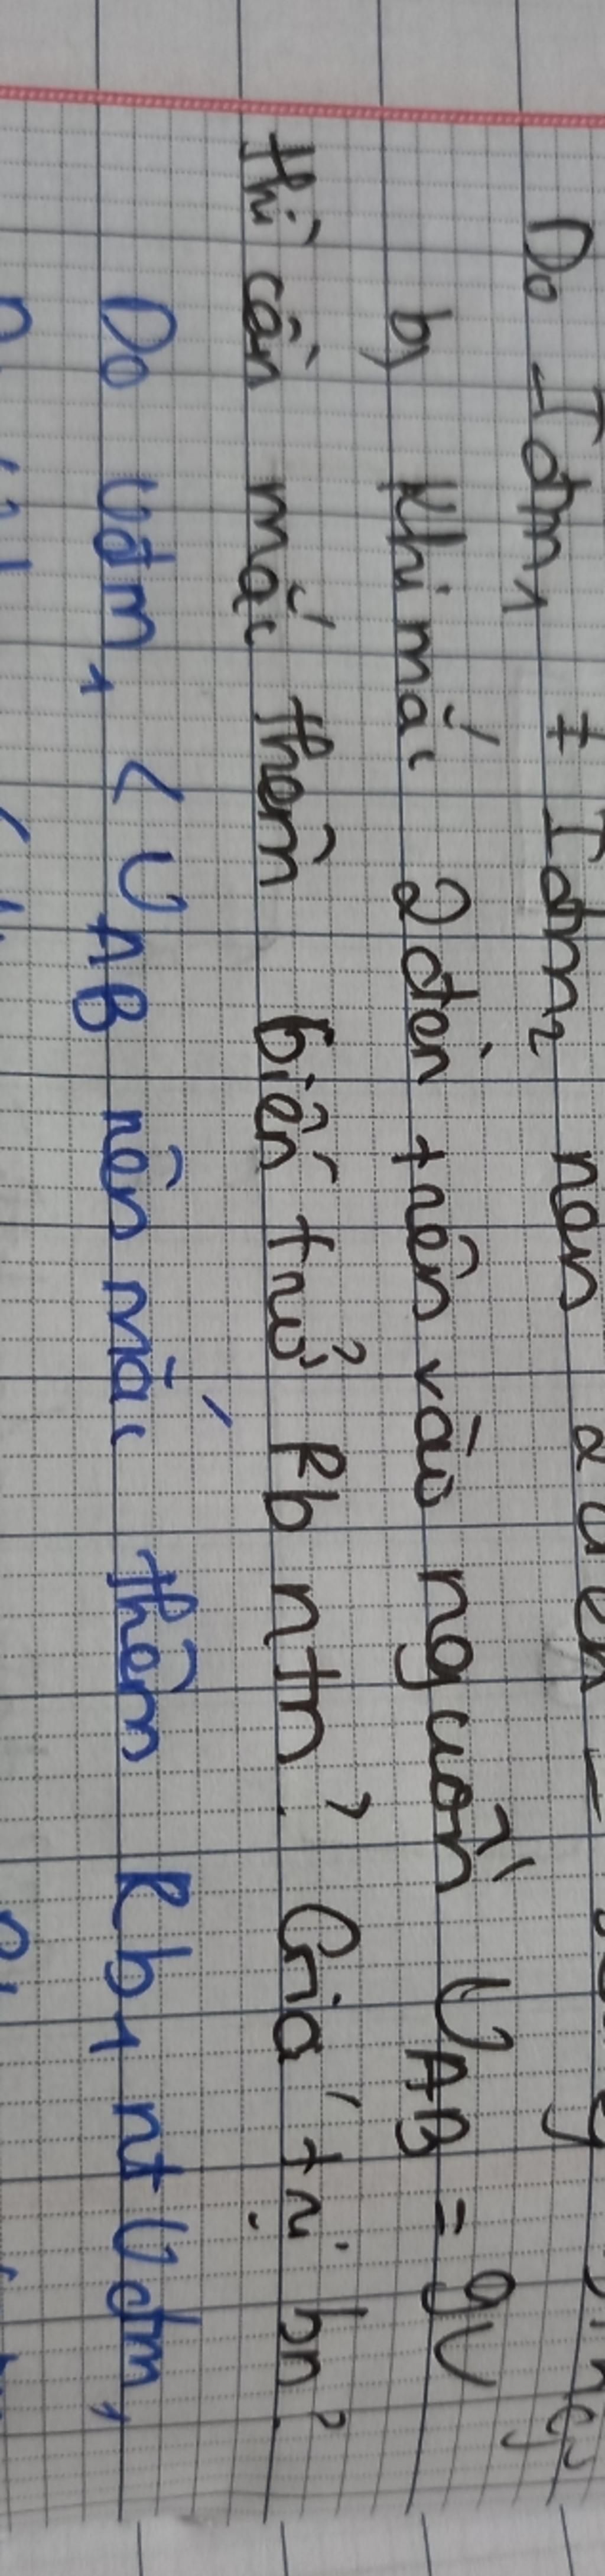 Do Iđm1 ≠ Iđm2 nên 2 đèn
b, Khi mắc 2 đèn trên vào nguồn UAB = 9V
thì cần mắc thêm biến trở Rb ntn? Giá trị bn?
Do Uđm1 < UAB nên mắc thêm Rb1 nt Uđm1